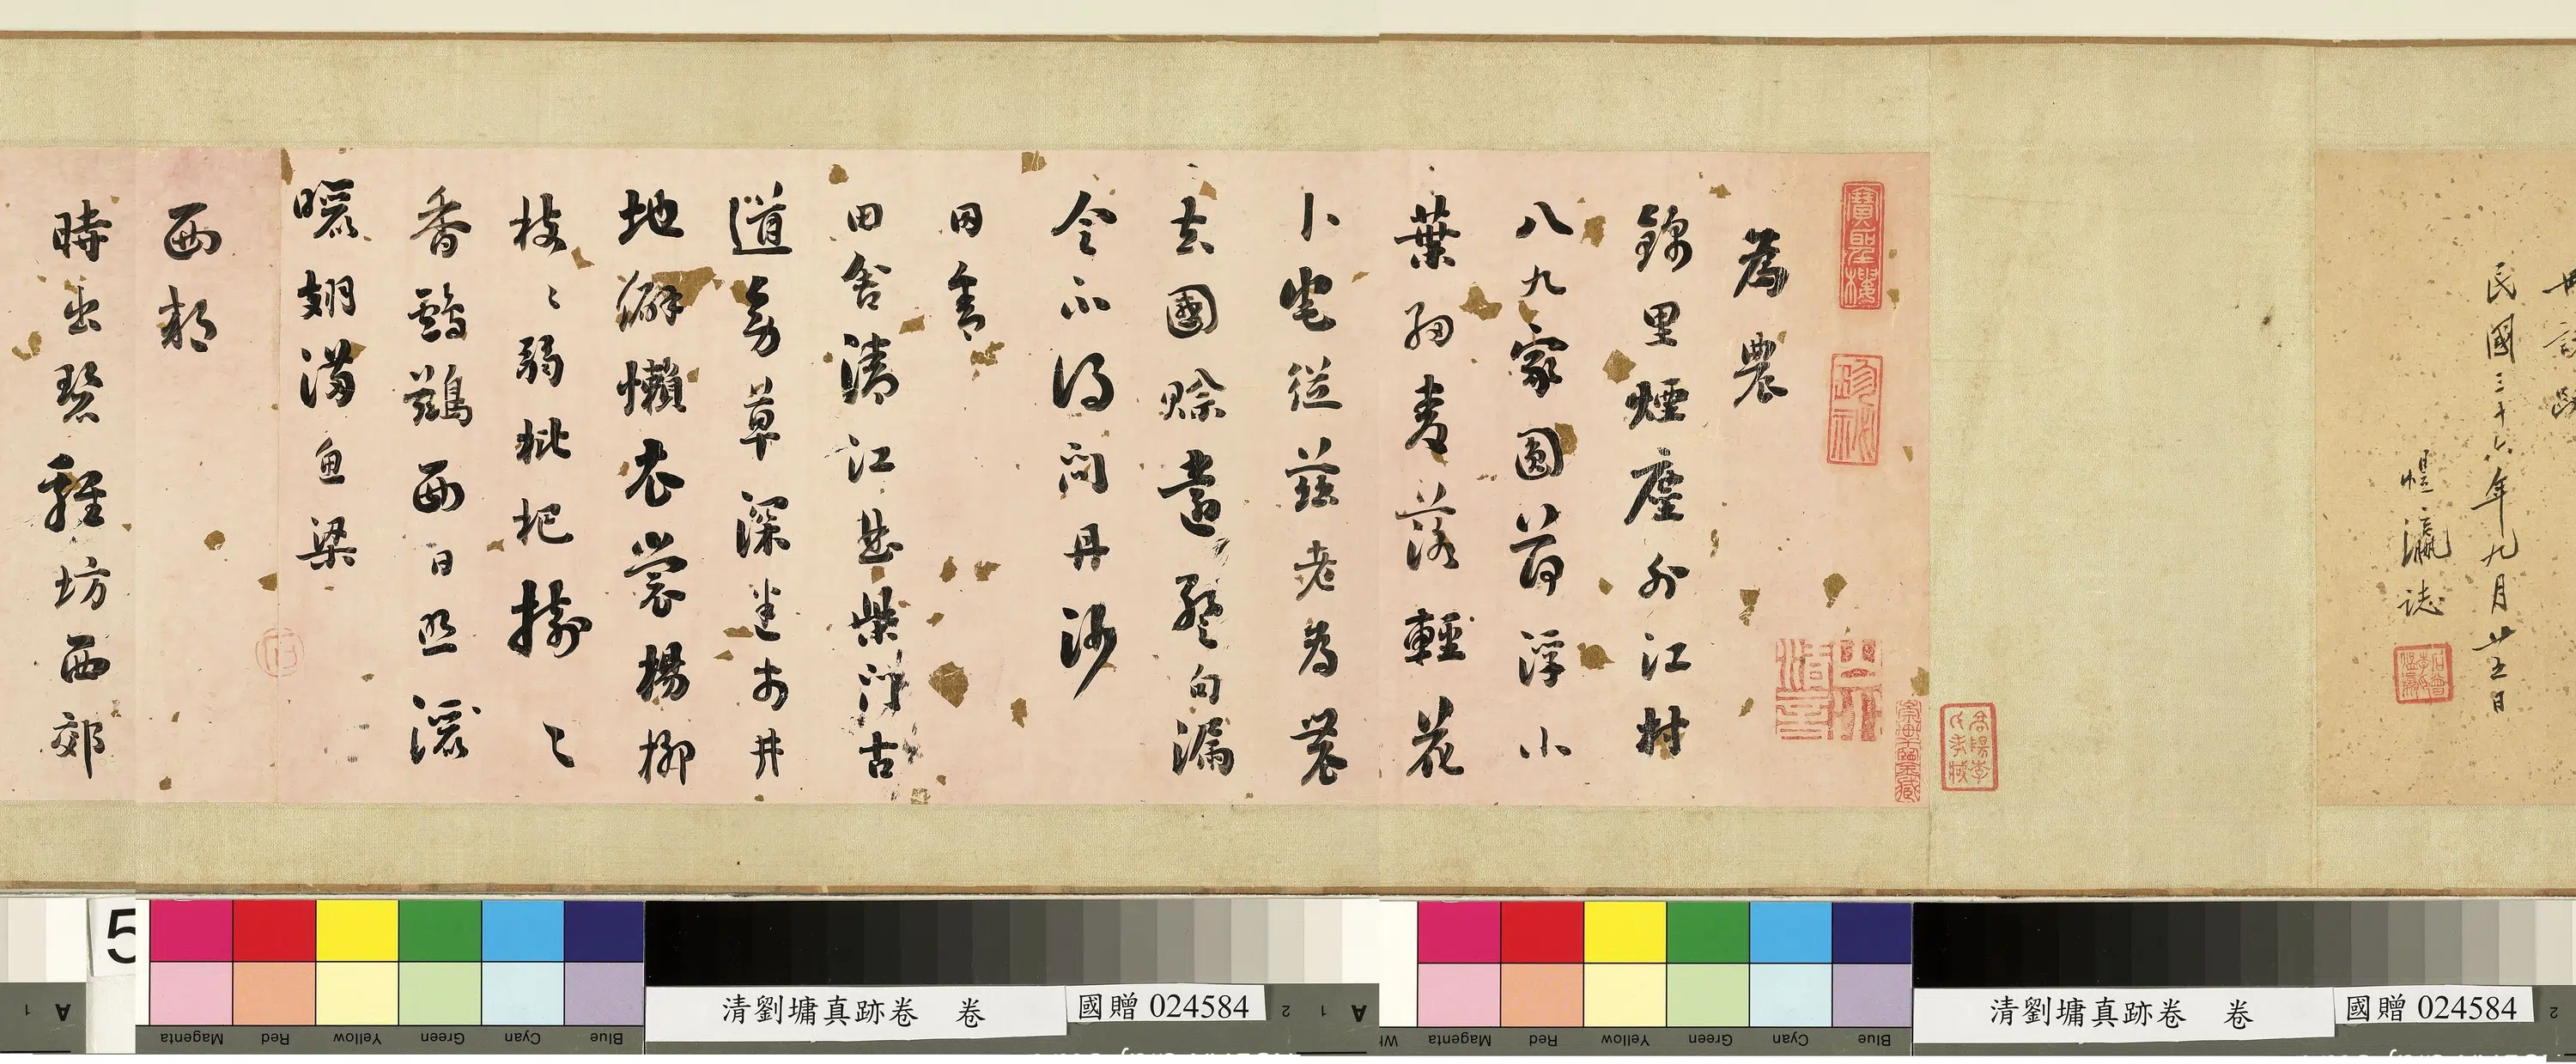 民國三十六年九月廿五日
煜瀛誌
寶聖樓
珍秘
為農
錦里煙塵外江村
八九家圓荷浮小
葉細麥落輕花
卜宅從茲老為農
去國賒遠慙句漏
令不得問丹沙
田舍
田舍清江曲柴門古
道旁草深迷市井
地僻懶衣裳楊柳
枝〻弱枇杷樹〻
香鸕鶿西日照
曬翅滿魚梁
西郊
時出碧雞坊西郊
5
Magenta Red Yellow Green Cyan Blue
清劉墉真跡卷 卷
國贈 024584
2 1 A
Magenta Red Yellow Green Cyan Blue
清劉墉真跡卷 卷
國贈 024584
2